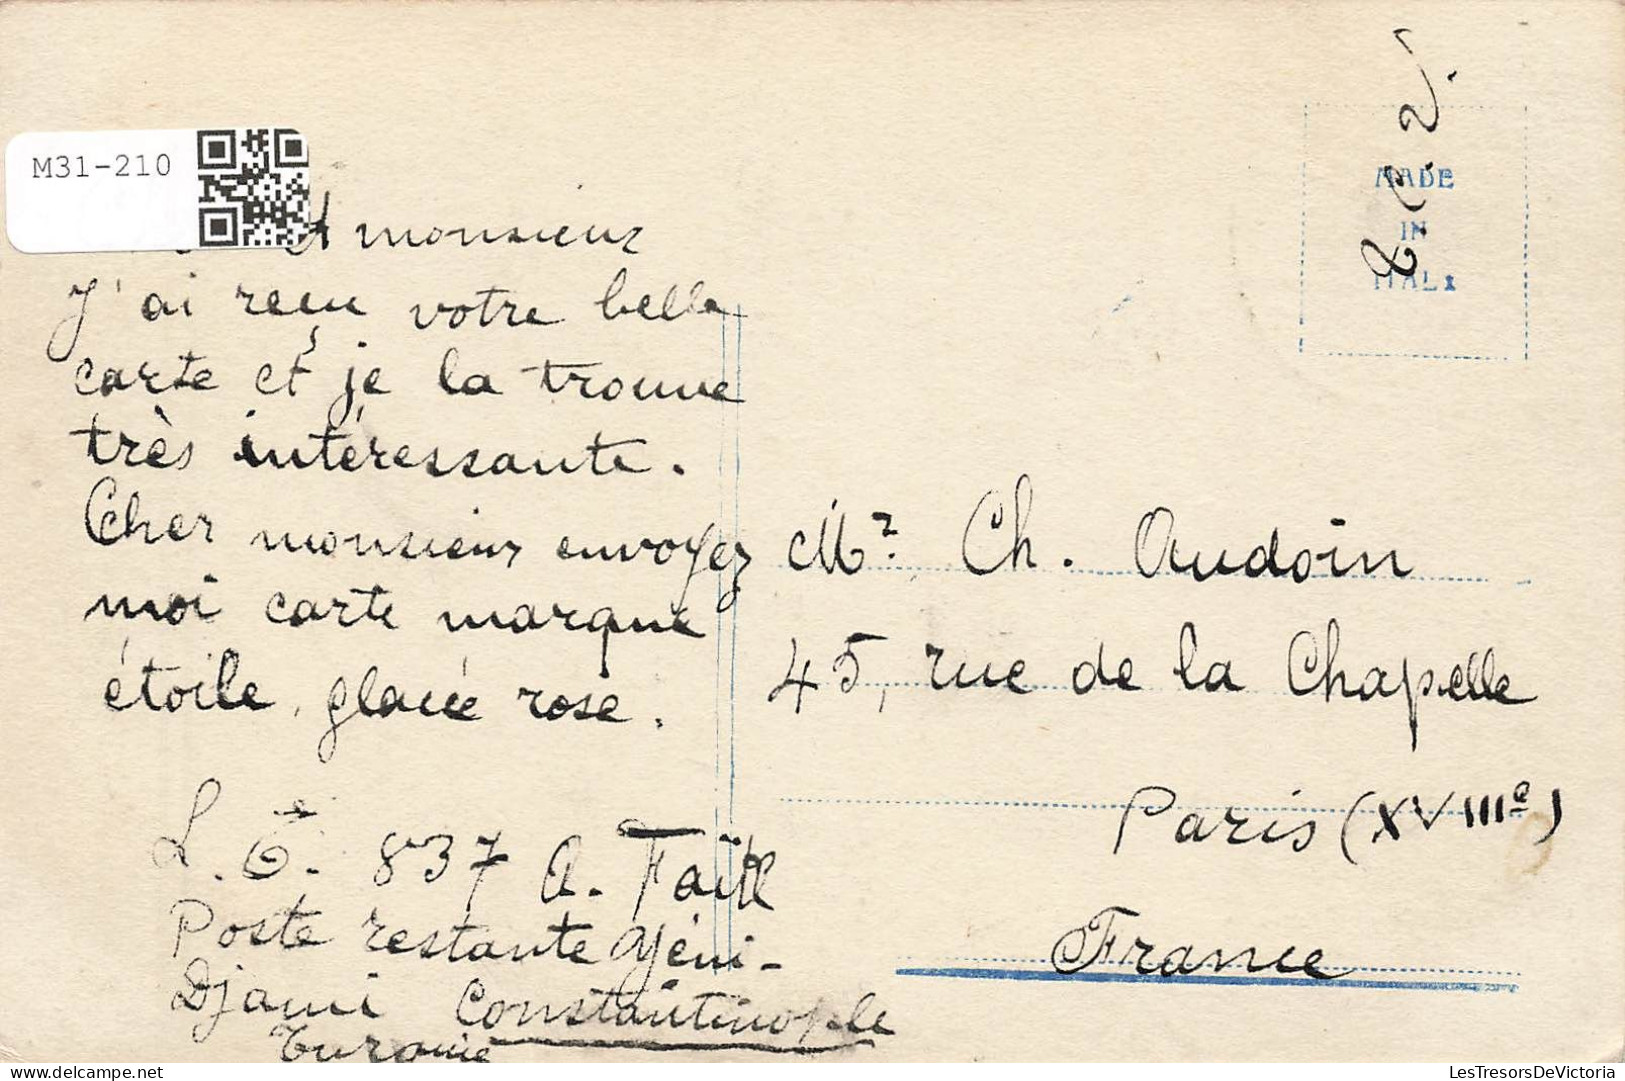 M31-210
monsieur
J'ai reçu votre belle
carte et je la trouve
très intéressante.
Cher monsieur envoyez
moi carte marque
étoile, glacée rose.
L. E. 837 A. Faïk
Poste restante Yéni-
Djami Constantinople
Turquie
T. C. V.
MADE
IN
ITALY
Mr. Ch. Audoin
45, rue de la Chapelle
Paris (XVIIIe)
France
delcampe.net
LesTresorsDeVictoria